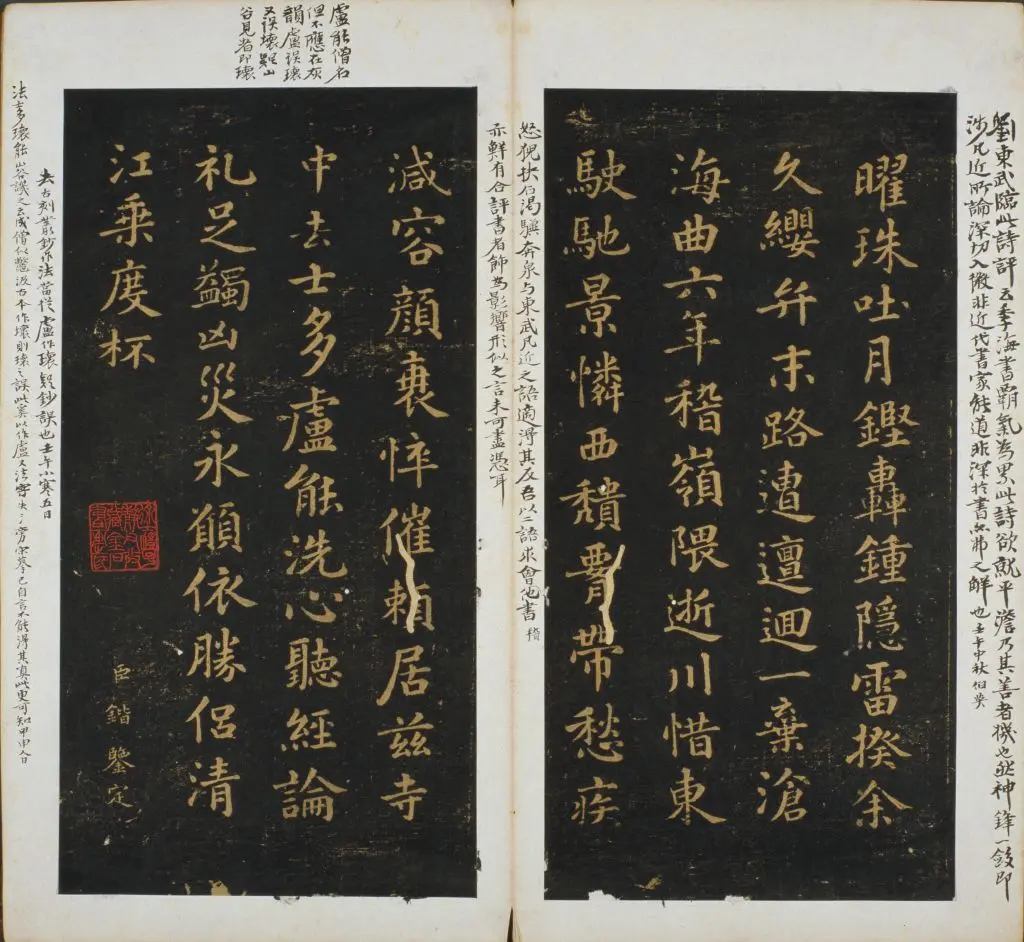 劉東武臨此詩評云季海書霸氣為累此詩欲就平澹乃其善者機也然神鋒一斂即
涉凡近所論深切入微非近代書家能道非深於書無弗之解也壬午中秋伯英
曜珠吐月鏗轟鍾隱雷揆余
久纓弁末路遭邅迴一棄滄
海曲六年稽嶺隈逝川惜東
駛馳景憐西頹腰帶愁疾
怒猊抉石渴驥奔泉与東武凡近之語適得其反吾以二語求會他書稽
亦鮮有合評書者飾為影響形似之言未可盡憑耳
減容顏衰悴催賴居茲寺
中去士多盧能洗心聽經論
礼足蠲凶災永願依勝侶清
江乘度杯
臣鍇鑒定
盧能僧名
但不應在灰
韻盧誤瓌
又誤壞疑山
谷見者即瓌
去古刻叢鈔作法當從盧作瓌疑鈔誤也壬午小寒五日
法多瓌能